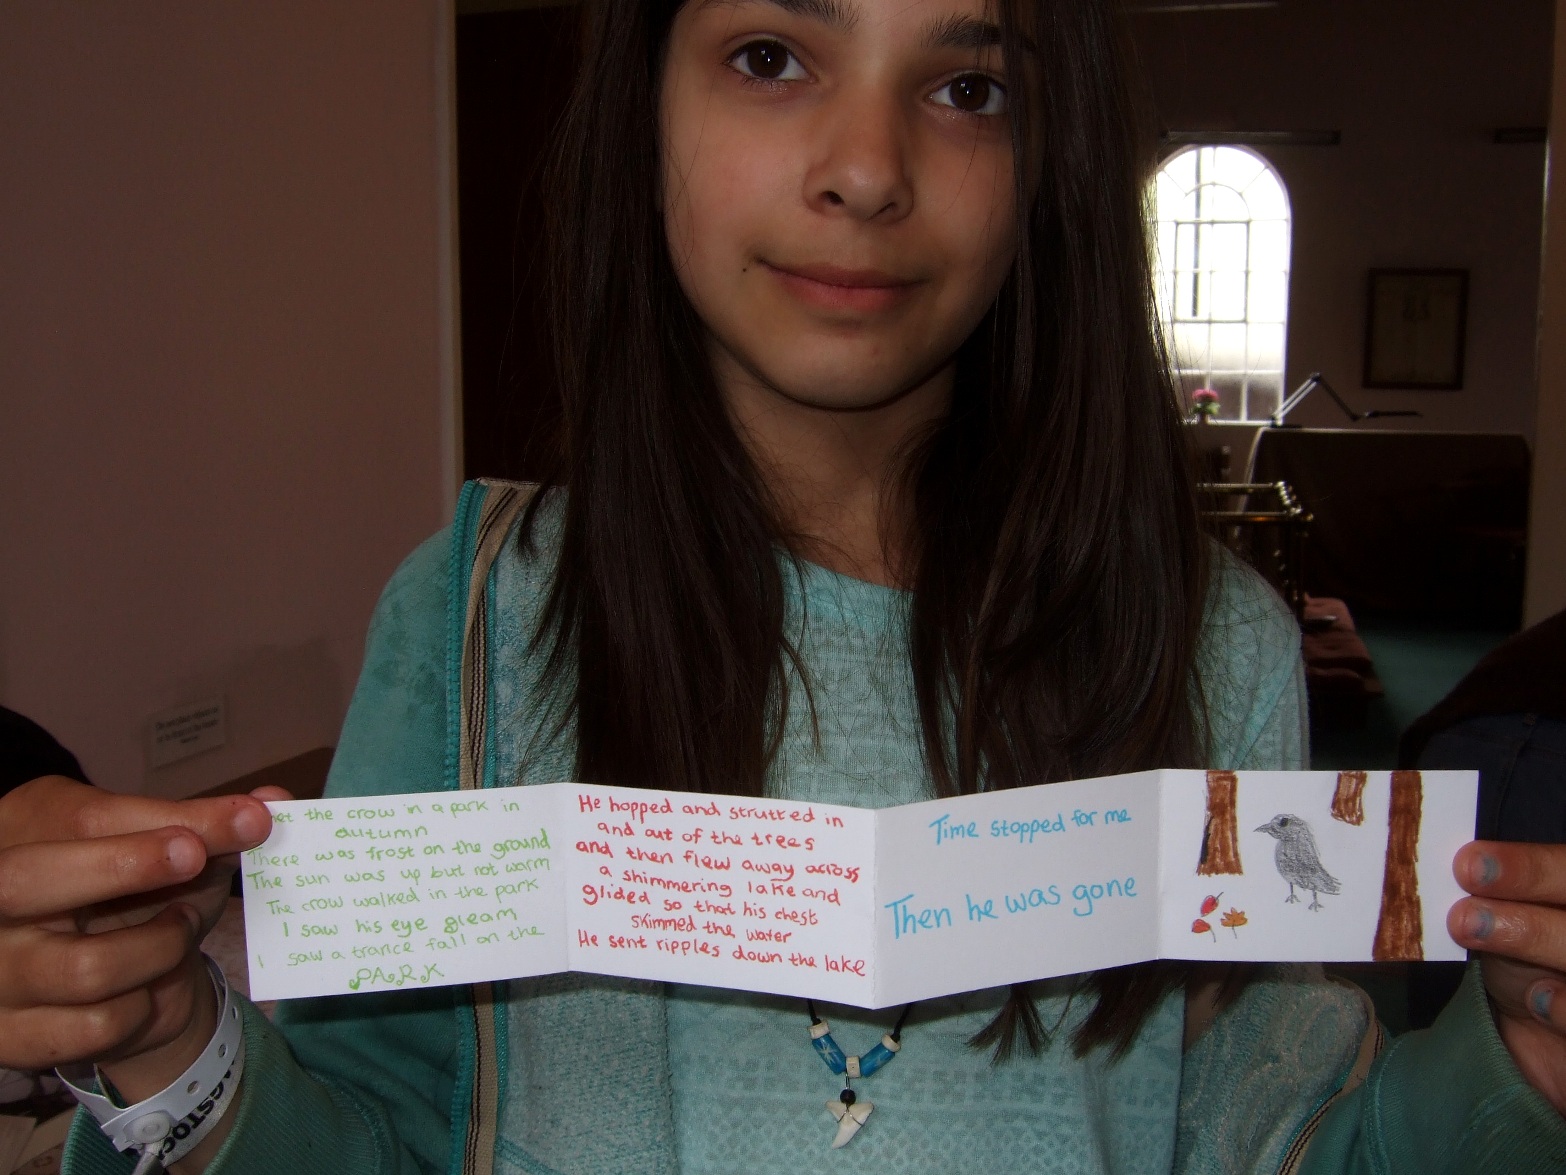 met the crow in a park in
autumn
There was frost on the ground
The sun was up but not warm
The crow walked in the park
I saw his eye gleam
I saw a trance fall on the
PARK
He hopped and strutted in
and out of the trees
and then flew away across
a shimmering lake and
glided so that his chest
skimmed the water
He sent ripples down the lake
Time stopped for me
Then he was gone